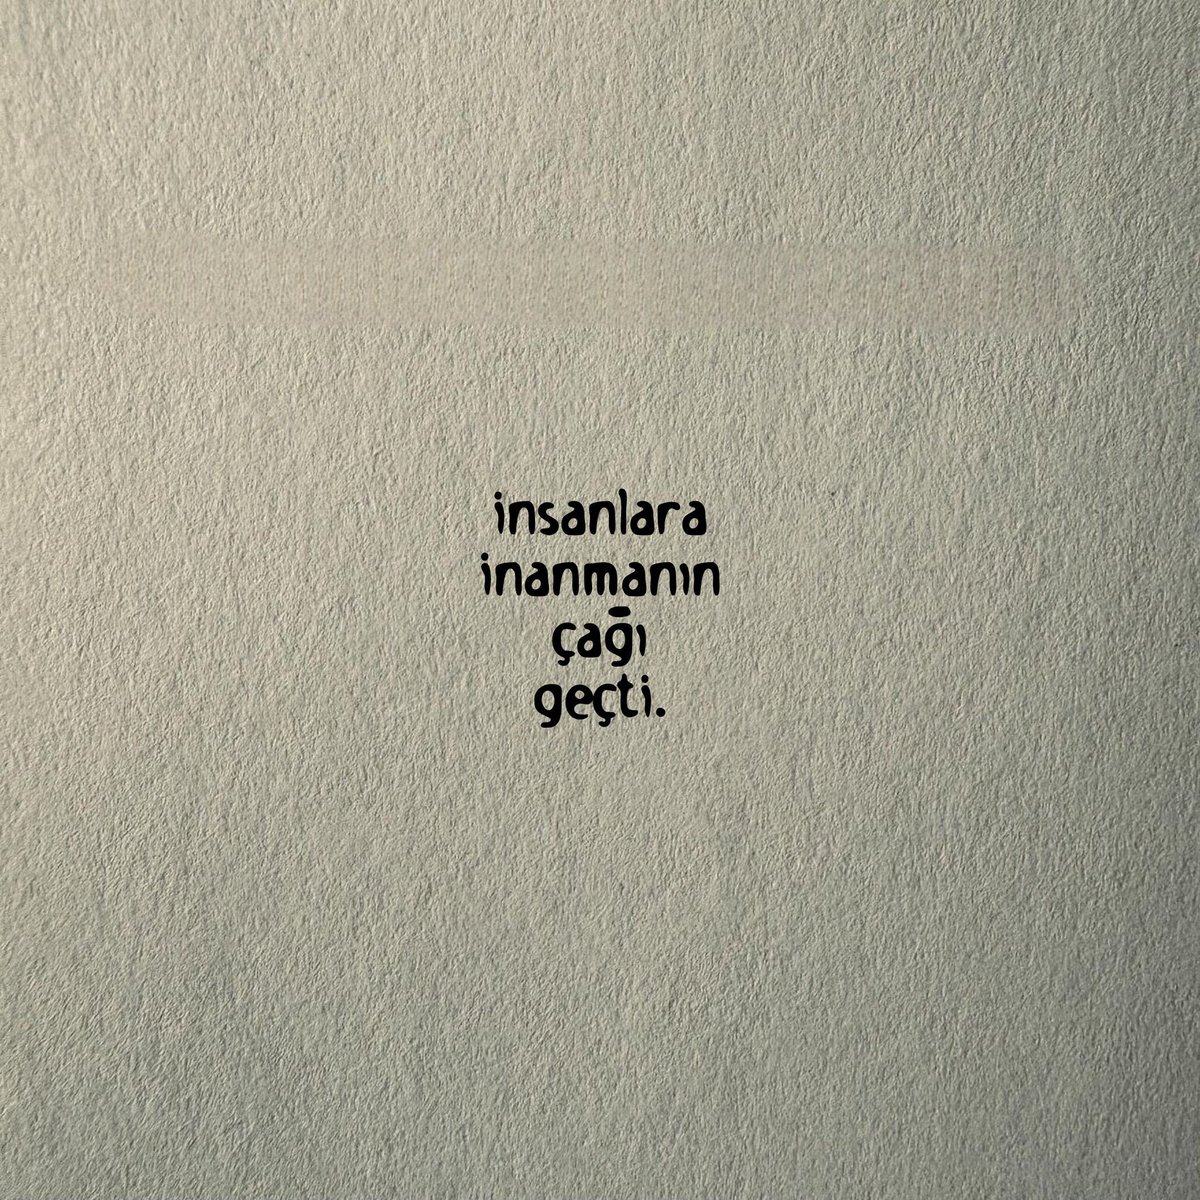 insanlara
inanmanın
çağı
geçti.